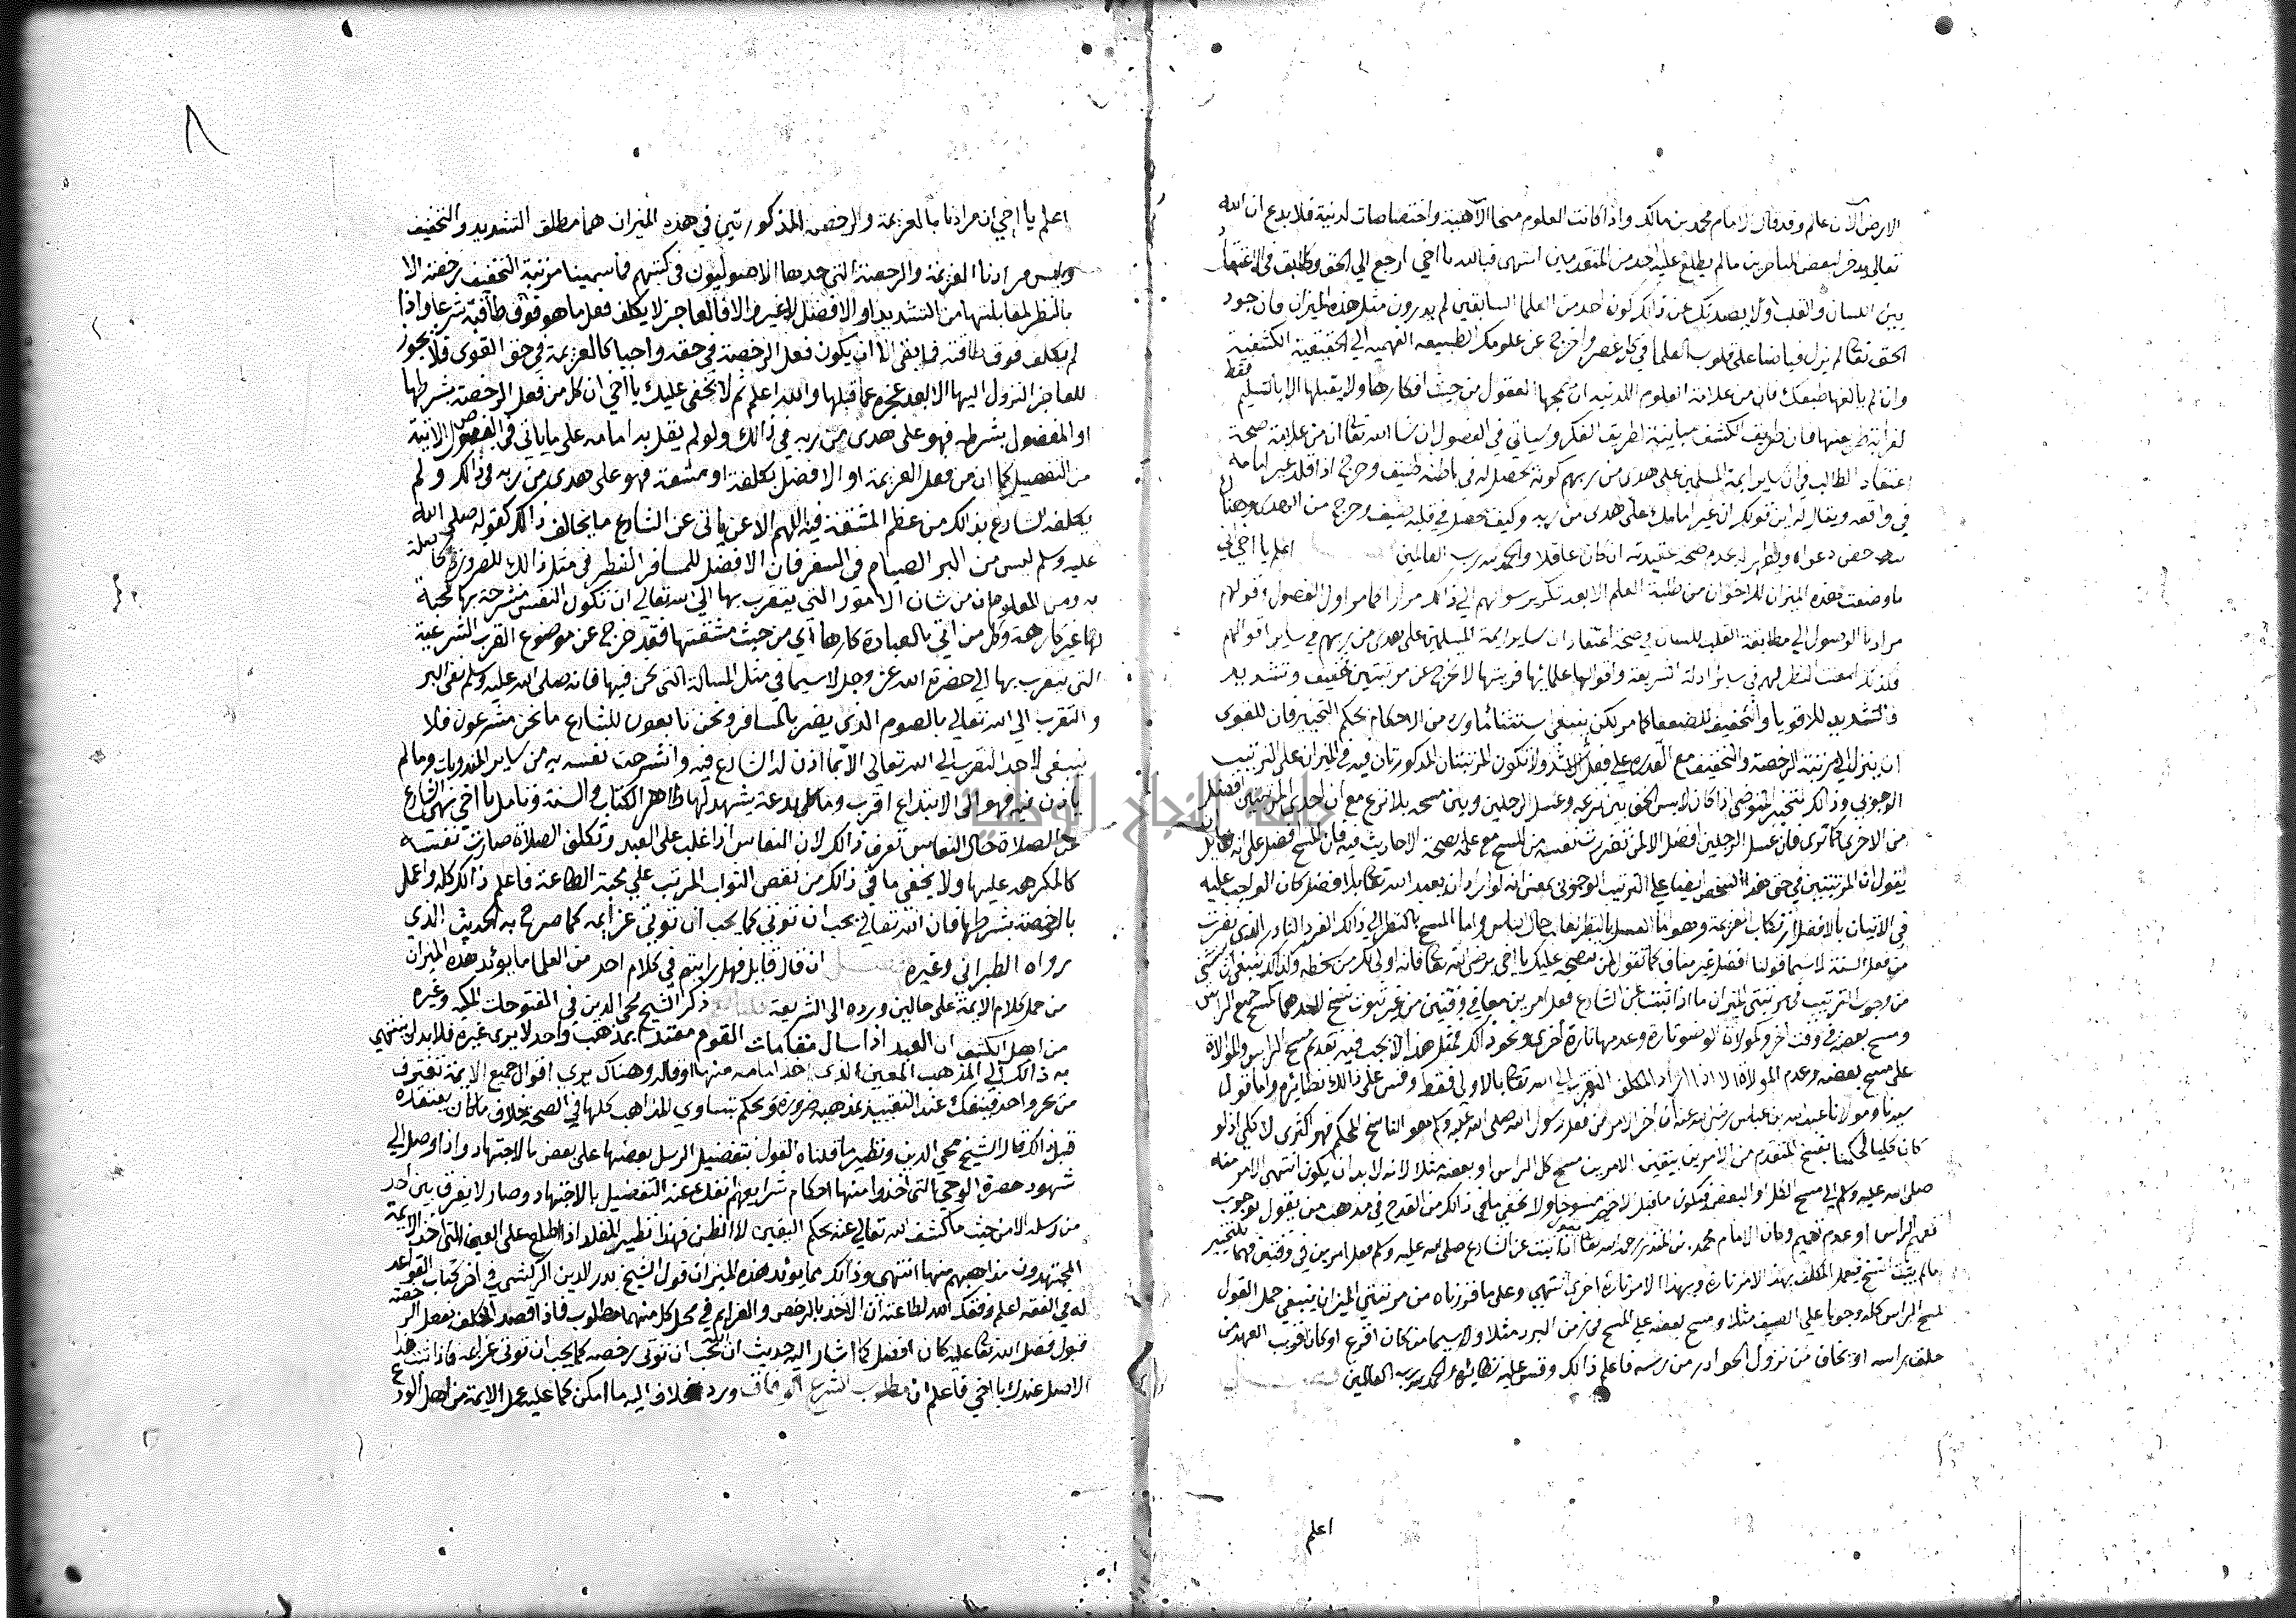 الارض الآن عالم وقد قال الامام محمد بن مالك واذا كانت العلوم منحا الاهية واختصاصات لدنية فلا بدع ان الله
تعالى يدخر لبعض المتاخرين ما لم يطلع عليه احد من المتقدمين انتهى فبالله يا اخي ارجع الي الحق وطابق في الاعتقاد
بين اللسان والقلب ولا يصدنك عن ذالك كون احد من العلما السابقين لم يدون مثل هذه الميزان فان جود
الحق تعا لم يزل فياضا على قلوب العلما في كل عصر واخرج عن علومك الطبيعيه الفهميه الي الحقيقية الكشفية
وان لم يالفها طبعك فان من علامة العلوم اللدنيه ان تمجها العقول من حيث افكارها ولا يقبلها الا بالتسليم فقط
لغرابة طريقها فان طريق الكشف مباينة لطريق الفكر وسياتي في الفصول ان شا الله تعا ان من علامة صحة
اعتقاد الطالب في ان ساير ايمة المسلمين على هدى من ربهم كونه يحصل له في باطنه ضيق وحرج اذا قلد غير امامه
في واقعه ويقال له اين قولك ان غير امامك على هدى من ربه وكيف يحصل في قلبك ضيق وحرج من الهدى وهناك
تدحض دعواه ويظهر له عدم صحة عقيدته ان كان عاقلا والحمد لله رب العالمين اعلم يا اخي اني
ما وضعت هذه الميزان للاخوان من طلبة العلم الا بعد تكرير سوالهم لي ذالك مرارا كما مر اول الفصول وقولهم
مرادنا الوصول الي مطابقة القلب للسان في صحة اعتقاد ان ساير ايمة المسلمين على هدى من ربهم في ساير اقوالهم
فلذلك امعنت النظر لهم في ساير ادلة الشريعة واقوال علمائها فريتها لا تخرج عن مرتبتين تخفيف وتشديد
فالتشديد للاقويا والتخفيف للضعفا كما مر لكن ينبغي استثنا ما ورد من الاحكام بحكم التخيير فان للقوى
ان ينزل الي مرتبة الرخصة والتخفيف مع القدرة علي فعل الاشد ولا تكون المرتبتان المذكورتان فيه في الميزان على الترتيب
الوجوبي وذالك كتخيير المتوضي اذا كان لابس الخف بين نزعه وغسل الرجلين وبين مسحه بلا نزع مع ان احدى المرتبتين افضل
من الاخرى كما ترى فان غسل الرجلين افضل الا لمن نفرت نفسه من المسح مع علمه بصحة الاحاديث فيه فان المسح افضل على ان لقايل
يقول ان المرتبتين في حق هذا الشخص ايضا علي الترتيب الوجوبي بمعنى انه لو اراد ان يعبد الله تعا بالافضل كان الواجب عليه
في الاتيان بالافضل ارتكاب العزيمة وهو اما الغسل بالنظر لغالب حال الناس واما المسح بالنظر الي ذالك الفرد النادر الذي نفرت
من فعل السنة لا سيما وقولنا افضل غير مناف كما تقول لمن تنصحه عليك يا اخي برضى الله تعا فانه اولى لك من سخطه وكذالك ينبغي ان يستثنى
من وجوب الترتيب في مرتبتي الميزان ما اذا ثبت عن الشارع فعل امرين معا في وقتين من غير ثبوت نسخ لاحدهما كمسح جميع الراس
ومسح بعضه في وقت اخر وكموالاة الوضو تارة وعدمها تارة اخرى ونحو ذالك فمثل هذا لا يجب فيه تقديم مسح الراس والموالاة
على مسح بعضه وعدم الموالاة الا اذا اراد المكلف التقرب الي الله تعا بالاولي فقط وقس على ذالك نظائره واما قول
سيدنا ومولانا عبد الله بن عباس رضي الله عنه ان اخر الامر من فعل رسول الله صلى الله عليه وسلم هو الناسخ المحكم فهو اكثري لا كلي اذ لو
كان كليا لحكمنا بنسخ المتقدم من الامرين بيقين الامرين مسح كل الراس او بعضه مثلا لانه لا بد ان يكون انتهى الامر منه
صلى الله عليه وسلم الي مسح الكل او البعض فيكون ما قبل الاخر منسوخا ولا يخفى ما في ذالك من القدح في مذهب من يقول بوجوب
تعميم الراس او عدم تعميم وكان الامام محمد بن المنذر رحمه الله تعا يقول اذا ثبت عن الشارع صلى الله عليه وسلم فعل امرين في وقتين فهما للتخيير
ما لم يثبت النسخ فيعمل المكلف بهذا الامر تارة وبهذا الامر تارة اخرى انتهى وعلى ما قررناه من مرتبتي الميزان ينبغي حمل القول
بمسح الراس كله وجوبا علي الصيف مثلا ومسح بعضه علي المسح في زمن البرد مثلا ولا سيما من كان اقرع او كان قريب العهد من
حلق براسه او يخاف من نزول الحوادر من رسه فاعلم ذالك وقس عليه نظائره والحمد لله رب العالمين
اعلم
اعلم يا اخي ان مرادنا بالعزيمة والرخصة المذكورتين في هذه الميزان هما مطلق التشديد والتخفيف
وليس مرادنا العزيمة والرخصة التي حدها الاصوليون في كتبهم فما سمينا مرتبة التخفيف رخصة الا
بالنظر لمقابلتها من التشديد او الافضل لا غير والا فالعاجز لا يكلف فعل ما هو فوق طاقته شرعا واذا
لم يكلف فوق طاقته فما بقي الا ان يكون فعل الرخصة في حقه واجبا كالعزيمة في حق القوى فلا يجوز
للعاجز النزول اليها الا بعد عجزه عما قبلها والله اعلم ثم لا يخفى عليك يا اخي ان كل من فعل الرخصة بشرطها
او المفضول بشرطه فهو على هدى من ربه في ذالك ولو لم يقل به امامه على ما ياتي في الفصول الاتية
من التفصيل كما ان من فعل العزيمة او الافضل بكلفة او مشقة فهو على هدى من ربه في ذالك ولم
يكلفه الشارع بذالك من عظم المشقة فيه اللهم الا عن ياتي عن الشارع ما يخالف ذالك كقوله صلى الله
عليه وسلم ليس من البر الصيام في السفر فان الافضل للمسافر الفطر في مثل ذالك للضرر الحاصل
به ومن المعلوم ان من شان الامور التي يتقرب بها الي الله تعالي ان تكون النفس منشرحة بها محبة
لها غير كارهة وكل من اتي بالعبادة كارها اي من حيث مشقتها فقد خرج عن موضوع القرب الشرعية
التي يتقرب بها الي حضرة الله عز وجل لا سيما في مثل المسالة التي نحن فيها فانه صلى الله عليه وسلم نفى البر
والتقرب الي الله تعالي بالصوم الذي يضر بالمسافر ونحن تابعون للشارع ما نحن مشرعون فلا
ينبغي لاحد التقرب الي الله تعالي الا بما اذن له الشارع فيه وانشرحت نفسه به من ساير المندوبات وما لم
ياذن فيه فهو الى الابتداع اقرب وما كل بدعة يشهد لها ظاهر الكتاب والسنة وتامل يا اخي نهي الشارع
عن الصلاة حال النعاس تعرف ذالك لان النعاس اذا غلب على العبد وتكلف الصلاة صارت نفسه
كالمكره عليها ولا يخفى ما في ذالك من نقص الثواب المرتب علي محبة الطاعة فاعلم ذالك كله واعمل
بالرخصة بشرطها فان الله تعالي يحب ان توتي كما يحب ان توتي عزايمه كما صرح به الحديث الذي
رواه الطبراني وغيره ان قال قايل فهل رايتم في كلام احد من العلما ما يوئد هذه الميزان
من حمل كلام الايمة على حالين ورده الى الشريعة ذكر الشيخ محي الدين في الفتوحات المكيه وغيره
من اهل الكشف ان العبد اذا سال مقامات القوم مقتدا بمذهب واحد لا يرى غيره فلا بد ان ينتهي
به ذالك الي المذهب المعين الذي اخذ امامه منها اقواله وهناك يرى اقوال جميع الايمة تغترف
من بحر واحد فينفك عند التقييد بمذهبه ضرورة ويحكم بتساوي المذاهب كلها في الصحة بخلاف ما كان يعتقده
قبل ذالك قال الشيخ محي الدين ونظير ما قلناه القول بتفضيل الرسل بعضها على بعض بالاجتهاد واذا وصل الي
شهود حضرة الوحي التي اخذوا منها احكام شرايعهم انفك عنه التفضيل بالاجتهاد وصار لا يفرق بين احد
من رسله الا من حيث ما كشف الله تعالي عنه بحكم اليقين لا الظن فهذا نظير المقلد اذا اطلع على العين التي اخذ الايمة
المجتهدون مذاهبهم منها انتهى وذالك مما يوئد هذه الميزان قول الشيخ بدر الدين الزركشي في اخر كتاب القواعد
له في الفقه اعلم وفقك الله لطاعته ان الاخذ بالرخص والعزايم في محل كل منهما مطلوب فاذا قصد المكلف بفعل الرخصة
قبول فضل الله تعا عليه كان افضل كما اشار اليه حديث ان الله يحب ان توتى رخصه كما يحب ان توتى عزايمه فاذا ثبت هذا
الاصل عندك يا اخي فاعلم ان مطلوب الشرع الوفاق ورد الخلاف اليه ما امكن كما عليه عمل الايمة من اهل الورع